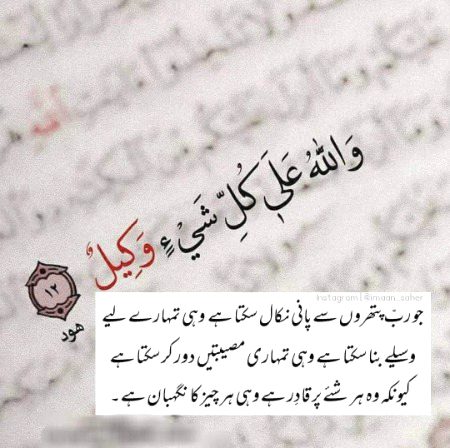 وَاللّٰهُ عَلَىٰ كُلِّ شَيْءٍ وَكِيلٌ
١٢
هود
Instagram | @imaan_saher
جو ربّ پتھروں سے پانی نکال سکتا ہے وہی تمہارے لیے
وسیلے بنا سکتا ہے وہی تمہاری مصیبتیں دور کر سکتا ہے
کیونکہ وہ ہر شئے پر قادِر ہے وہی ہر چیز کا نگہبان ہے۔